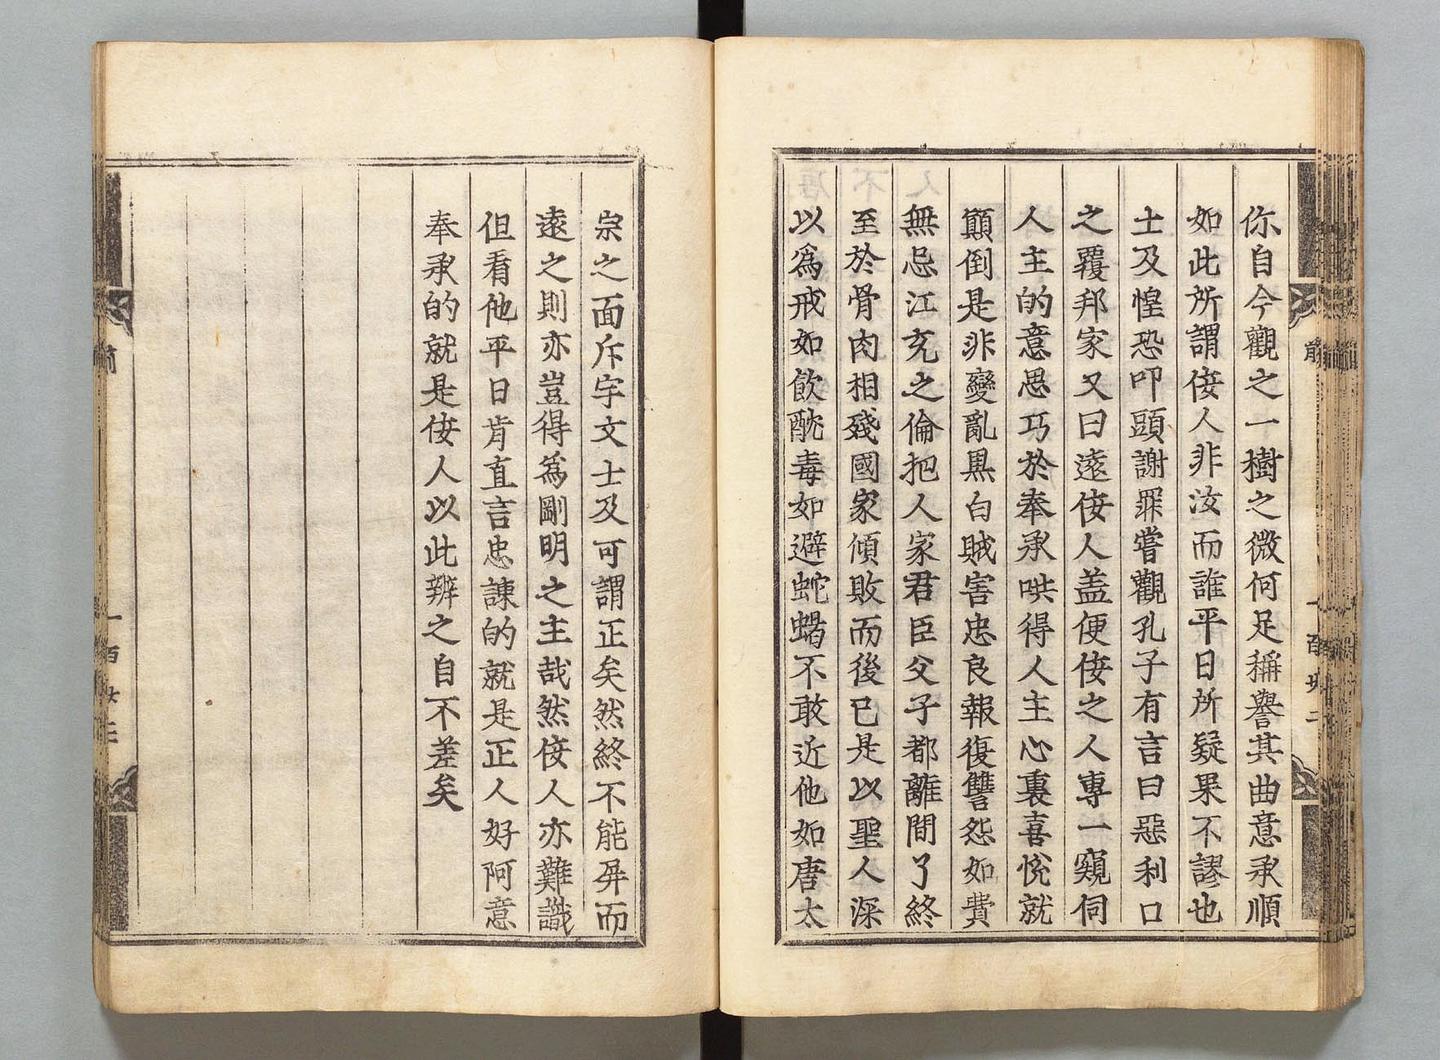 你自今觀之一樹之微何足稱譽其曲意承順
如此所謂佞人非汝而誰平日所疑果不謬也
士及惶恐叩頭謝罪嘗觀孔子有言曰惡利口
之覆邦家又曰遠佞人盖便佞之人專一窺伺
人主的意思巧於奉承哄得人主心裏喜悅就
顛倒是非變亂黑白賊害忠良報復讐怨如費
無忌江充之倫把人家君臣父子都離間了終
至於骨肉相殘國家傾敗而後已是以聖人深
以爲戒如飲酖毒如避蛇蝎不敢近他如唐太
宗之面斥宇文士及可謂正矣然終不能屏而
遠之則亦豈得爲剛明之主哉然佞人亦難識
但看他平日肯直言忠諫的就是正人好阿意
奉承的就是佞人以此辨之自不差矣